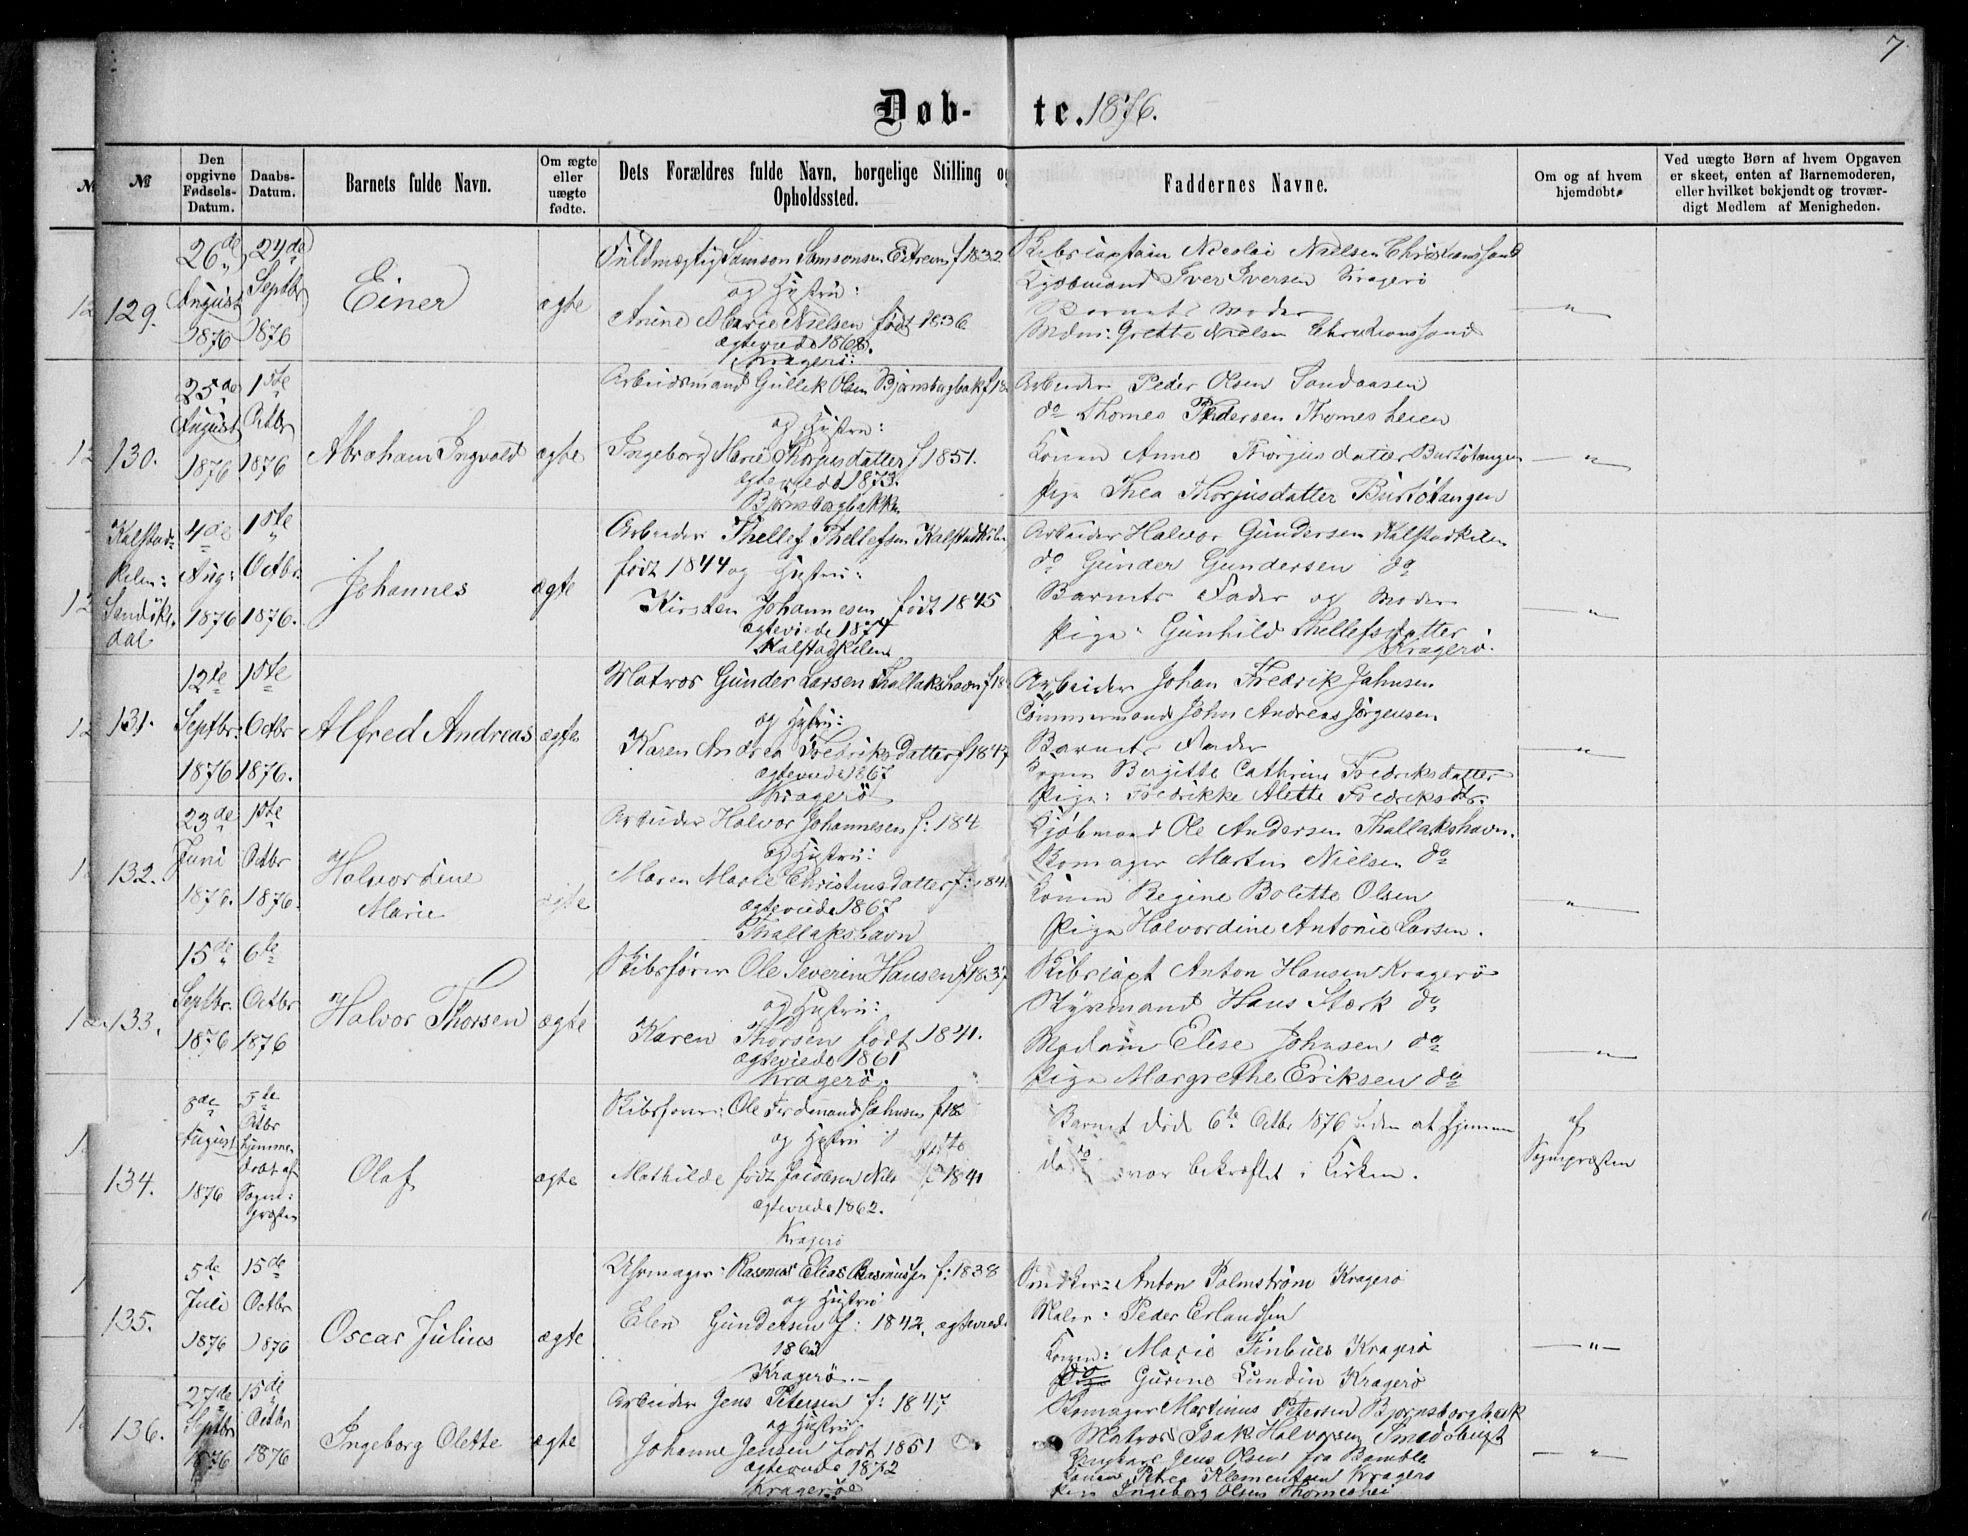 7.
Døb-te. 1876.
№
Den opgivne Fødsels-Datum.
Daabs-Datum.
Barnets fulde Navn.
Om ægte eller uægte fødte.
Dets Forældres fulde Navn, borgelige Stilling og Opholdssted.
Faddernes Navne.
Om og af hvem hjemdøbt.
Ved uægte Børn af hvem Opgaven er skeet, enten af Barnemoderen, eller hvilket bekjendt og troværdigt Medlem af Menigheden.
129.
26de August 1876
24de Septbr 1876
Einer
ægte
Fuldmægtig Samson Samsonsen Eitrem f 1832
og Hustru:
Anine Marie Nielsen født 1836
ægteviede 1868.
Kragerø:
Skibscaptain Nicolai Nielsen Christianssand
Kjøbmand Iver Iversen Kragerø
Barnets Moder
Mdm: Grethe Nielsen Christianssand
— " —
130.
25de August 1876
1ste Octbr 1876
Abraham Ingvald
ægte
Arbeidsmand Gullek Olsen Bjørnsborgbak f 18
og Hustru:
Ingeborg Marie Thorjusdatter f 1851.
ægteviede 1873.
Bjørnsborgbakken
Arbeider Peder Olsen Sandaasen
do Thomes Pedersen Thomesheien
Konen Anne Thorjusdatter Burtøtangen
Pige Thea Thorjusdatter Burtøtangen
— " —
Kalstad-
kilen:
Sandøke-
dal
4de Aug: 1876
1ste Octbr. 1876.
Johannes
ægte
Arbeider Thellef Thellefsen Kalstadkilen
født 1844 og Hustru:
Kirsten Johannesen født 1845
ægteviede 1874
Kalstadkilen
Arbeider Halvor Gundersen Kalstadkilen
do Gunder Gundersen do
Barnets Fader og Moder
Pige Gunhild Thellefsdatter
Kragerø.
— " —
131.
12te Septbr. 1876
1ste Octbr 1876.
Alfred Andreas
ægte
Matros Gunder Larsen Thallakshavn f 18
og Hustru:
Karen Andrea Fredriksdatter f 1847
ægteviede 1867
Kragerø
Arbeider Johan Fredrik Jahnsen
Tømmermand John Andreas Jørgensen
Barnets Fader
Konen Bergitte Cathrine Fredriksdatter
Pige: Fredrikke Alette Fredriksdtr.
— " —
132.
23de Juni 1876.
1ste Octbr 1876.
Halvordine
Marie
ægte
Arbeider Halvor Johannesen f: 184
og Hustru:
Maren Marie Christensdatter f: 184
ægteviede 1867
Thallakshavn
Kjøbmand Ole Andersen Thallakshavn.
Skomager Martin Nielsen do
Konen Regine Bolette Olsen
Pige Halvordine Antonie Larsen.
— " —
133.
15de Septbr. 1876
6te Octbr 1876
Halvor Thorsen
ægte
Skibsfører Ole Severin Hansen f 1837
og Hustru:
Karen Thorsen født 1841.
ægteviede 1861
Kragerø.
Skibscapt Anton Hansen Kragerø
Styrmand Hans Stærk do
Madam Elise Johnsen do
Pige Margrethe Eriksen do
— " —
134.
8de August 1876
5te Octbr hjemmedøbt af Sognepræsten
Olaf
ægte
Skibsfører: Ole Ferdinand Jahnsen f 18
og Hustru
Mathilde født Jacobsen f 1841
ægteviede 1862.
Kragerø
Barnet døde 6te Octbr 1876 uden at hjemme
daaben var bekræftet i Kirken.
af
Sognepræsten
135.
5de Juli 1876
15de Octbr 1876
Oscar Julius
ægte
Uhrmager: Rasmus Elias Rasmussen f: 1838
og Hustru
Elen Gundersen f: 1842, ægteviede
1862
Kragerø.—
Snedker: Anton Palmstrøm Kragerø
Maler: Peder Erlandsen
Konen: Marie Finbues Kragerø
do Gurine Lundin Kragerø
— " —
136.
27de Septbr 1876
15de Octbr 1876
Ingeborg Olette
ægte
Arbeider Jens Petersen f: 1847
og Hustru
Johanne Jensen født 1851
ægteviede 1872
Kragerø
Skomager Martinus Petersen Bjørnsborgbak
Matros Isak Halvorsen Smedsbugt
Ungkarl Jens Olsen fra Bamble
Konen Petrea Klementsen Kragerø
Pige Ingeborg Olsen Thomeshei
— " —